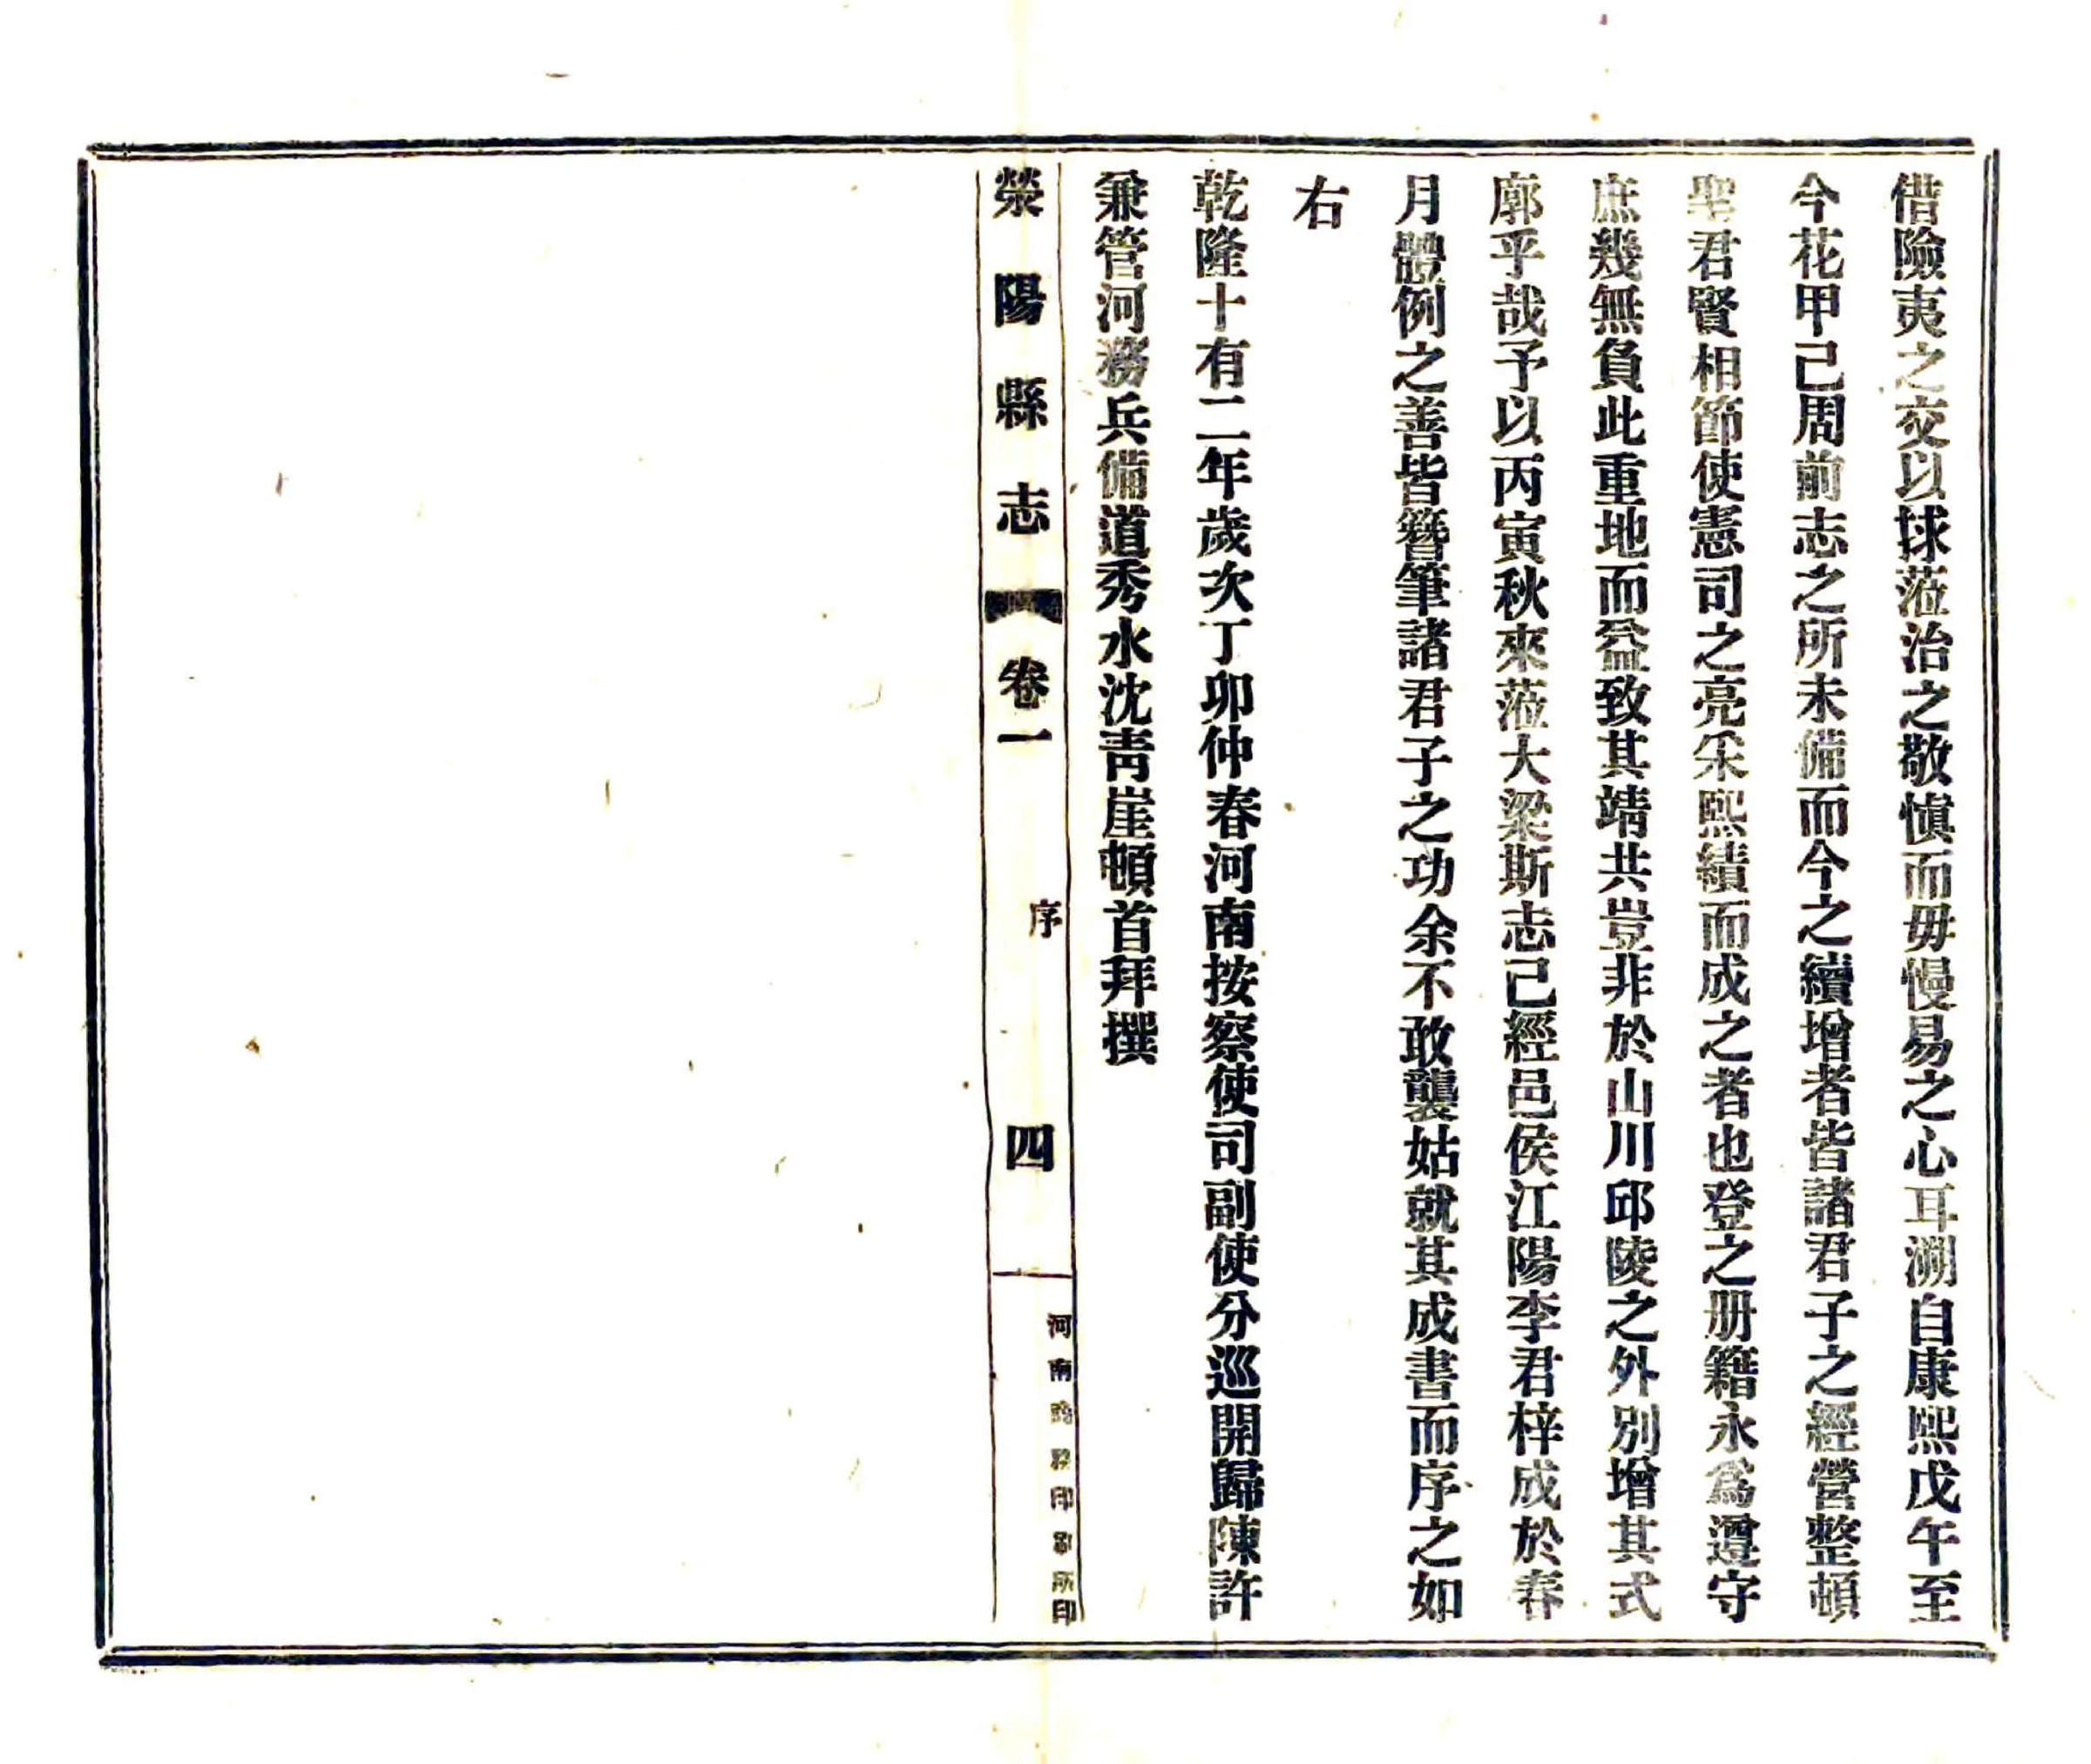 借險夷之交以捄蒞治之敬愼而毋慢易之心耳溯自康熙戊午至
今花甲已周前志之所未備而今之續增者皆諸君子之經營整頓
聖君賢相節使憲司之亮采熙績而成之者也登之册籍永爲遵守
庶幾無負此重地而益致其靖共豈非於山川邱陵之外別增其式
廓乎哉予以丙寅秋來蒞大梁斯志已經邑侯江陽李君梓成於春
月體例之善皆簪筆諸君子之功余不敢襲姑就其成書而序之如
右
乾隆十有二年歲次丁卯仲春河南按察使司副使分巡開歸陳許
兼管河務兵備道秀水沈靑崖頓首拜撰
滎陽縣志 卷一 序 四
河南商務印刷所印